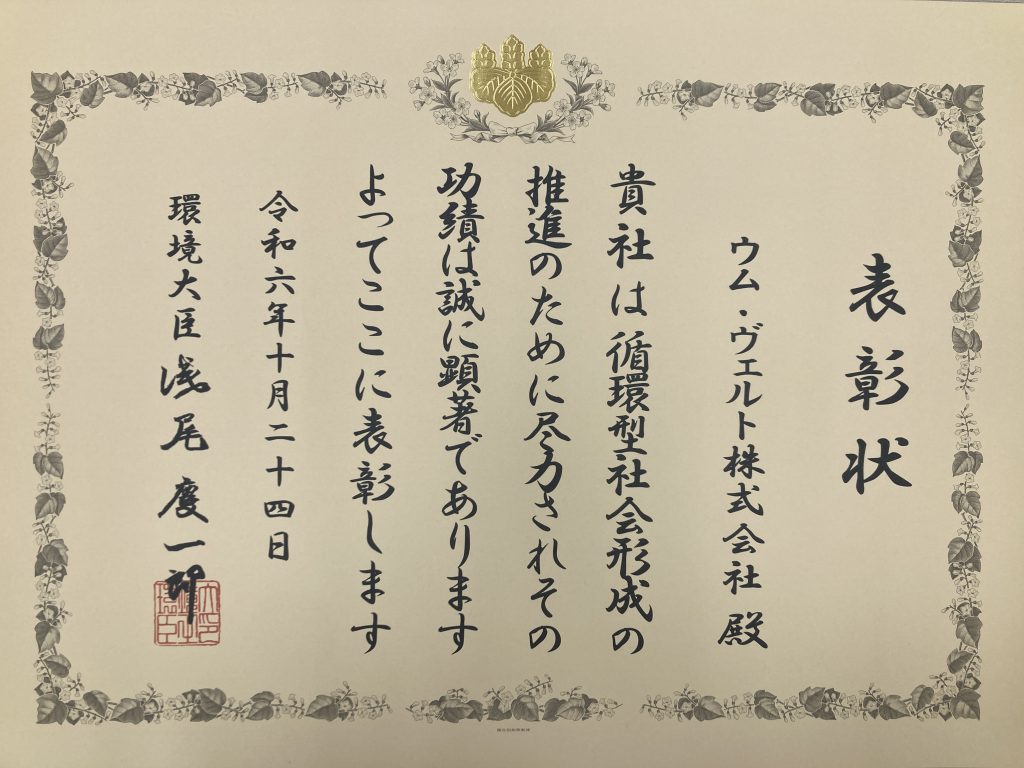 表彰状
ウム・ヴェルト株式会社 殿
貴社は循環型社会形成の
推進のために尽力されその
功績は誠に顕著であります
よってここに表彰します
令和六年十月二十四日
環境大臣 浅尾慶一郎